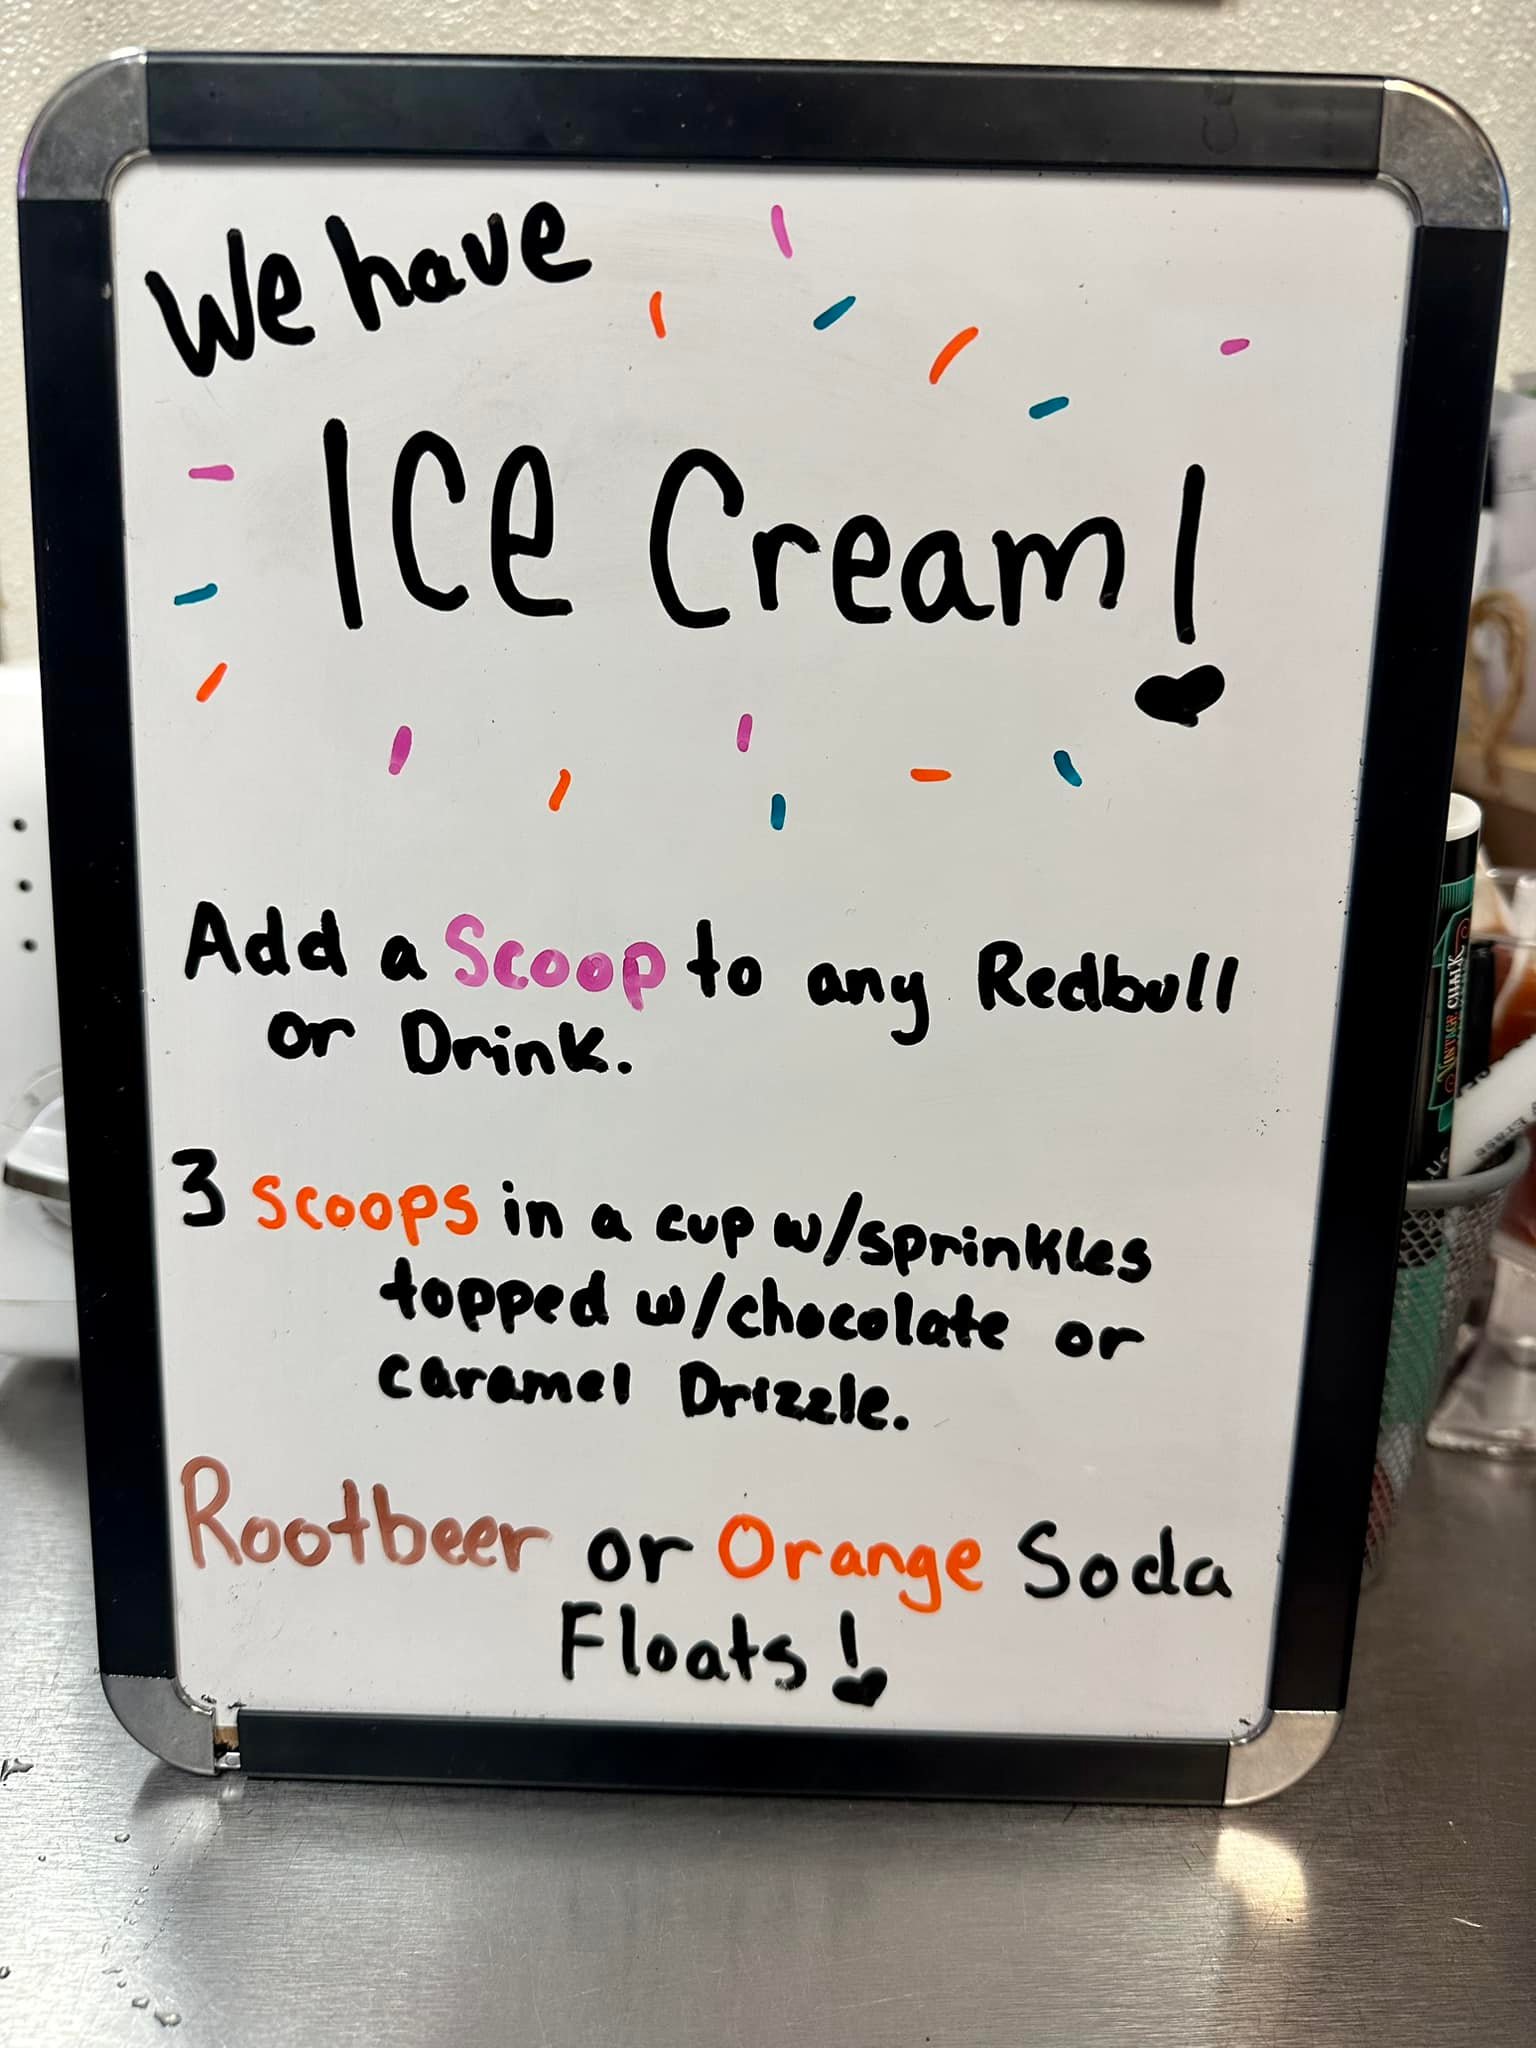 We have
Ice Cream!
Add a Scoop to any Redbull
or Drink.
3 scoops in a cup w/sprinkles
topped w/chocolate or
caramel Drizzle.
Rootbeer or Orange Soda
Floats!
VINTAGE CHALK